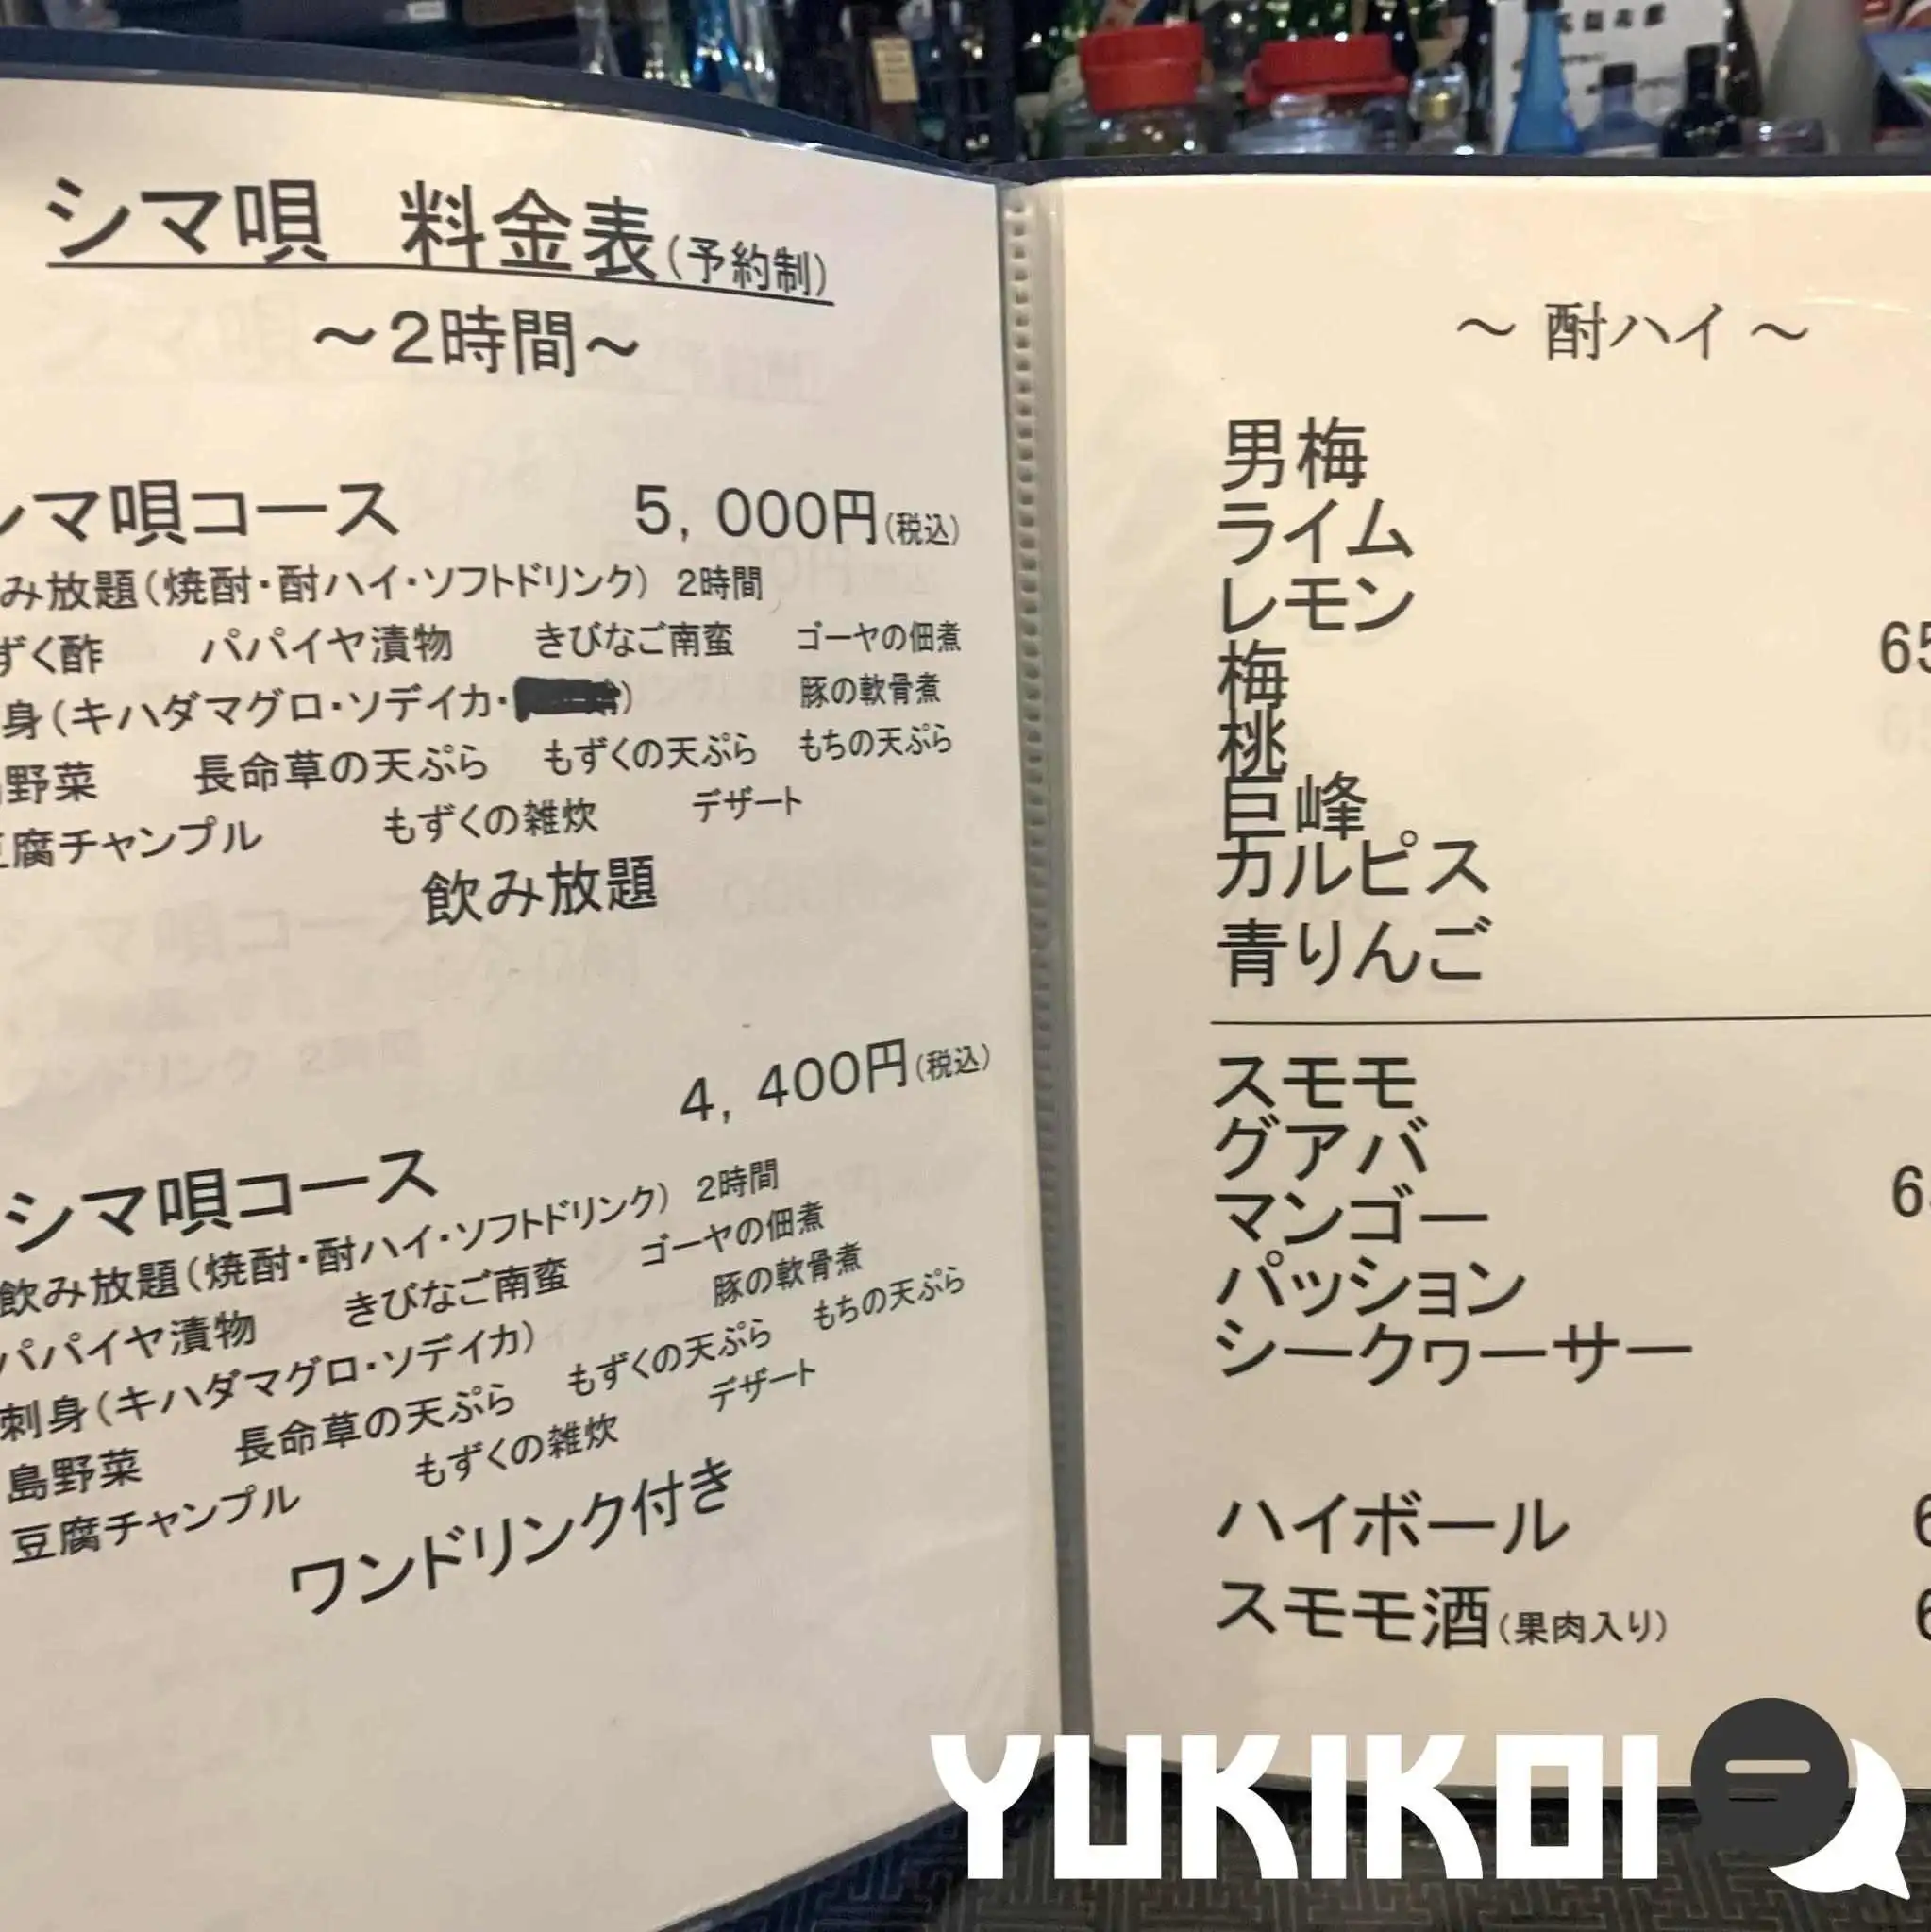 シマ唄 料金表(予約制)
～2時間～
シマ唄コース 5,000円(税込)
み放題(焼酎・酎ハイ・ソフトドリンク) 2時間
ずく酢 パパイヤ漬物 きびなご南蛮 ゴーヤの佃煮
身(キハダマグロ・ソデイカ・) 豚の軟骨煮
野菜 長命草の天ぷら もずくの天ぷら もちの天ぷら
豆腐チャンプル もずくの雑炊 デザート
飲み放題
シマ唄コース 4,400円(税込)
飲み放題(焼酎・酎ハイ・ソフトドリンク) 2時間
パパイヤ漬物 きびなご南蛮 ゴーヤの佃煮
刺身(キハダマグロ・ソデイカ) 豚の軟骨煮
島野菜 長命草の天ぷら もずくの天ぷら もちの天ぷら
豆腐チャンプル もずくの雑炊 デザート
ワンドリンク付き
～ 酎ハイ ～
男梅
ライム
レモン
梅
桃
巨峰
カルピス
青りんご
スモモ
グアバ
マンゴー
パッション
シークヮーサー
ハイボール
スモモ酒(果肉入り)
YUKIKOI